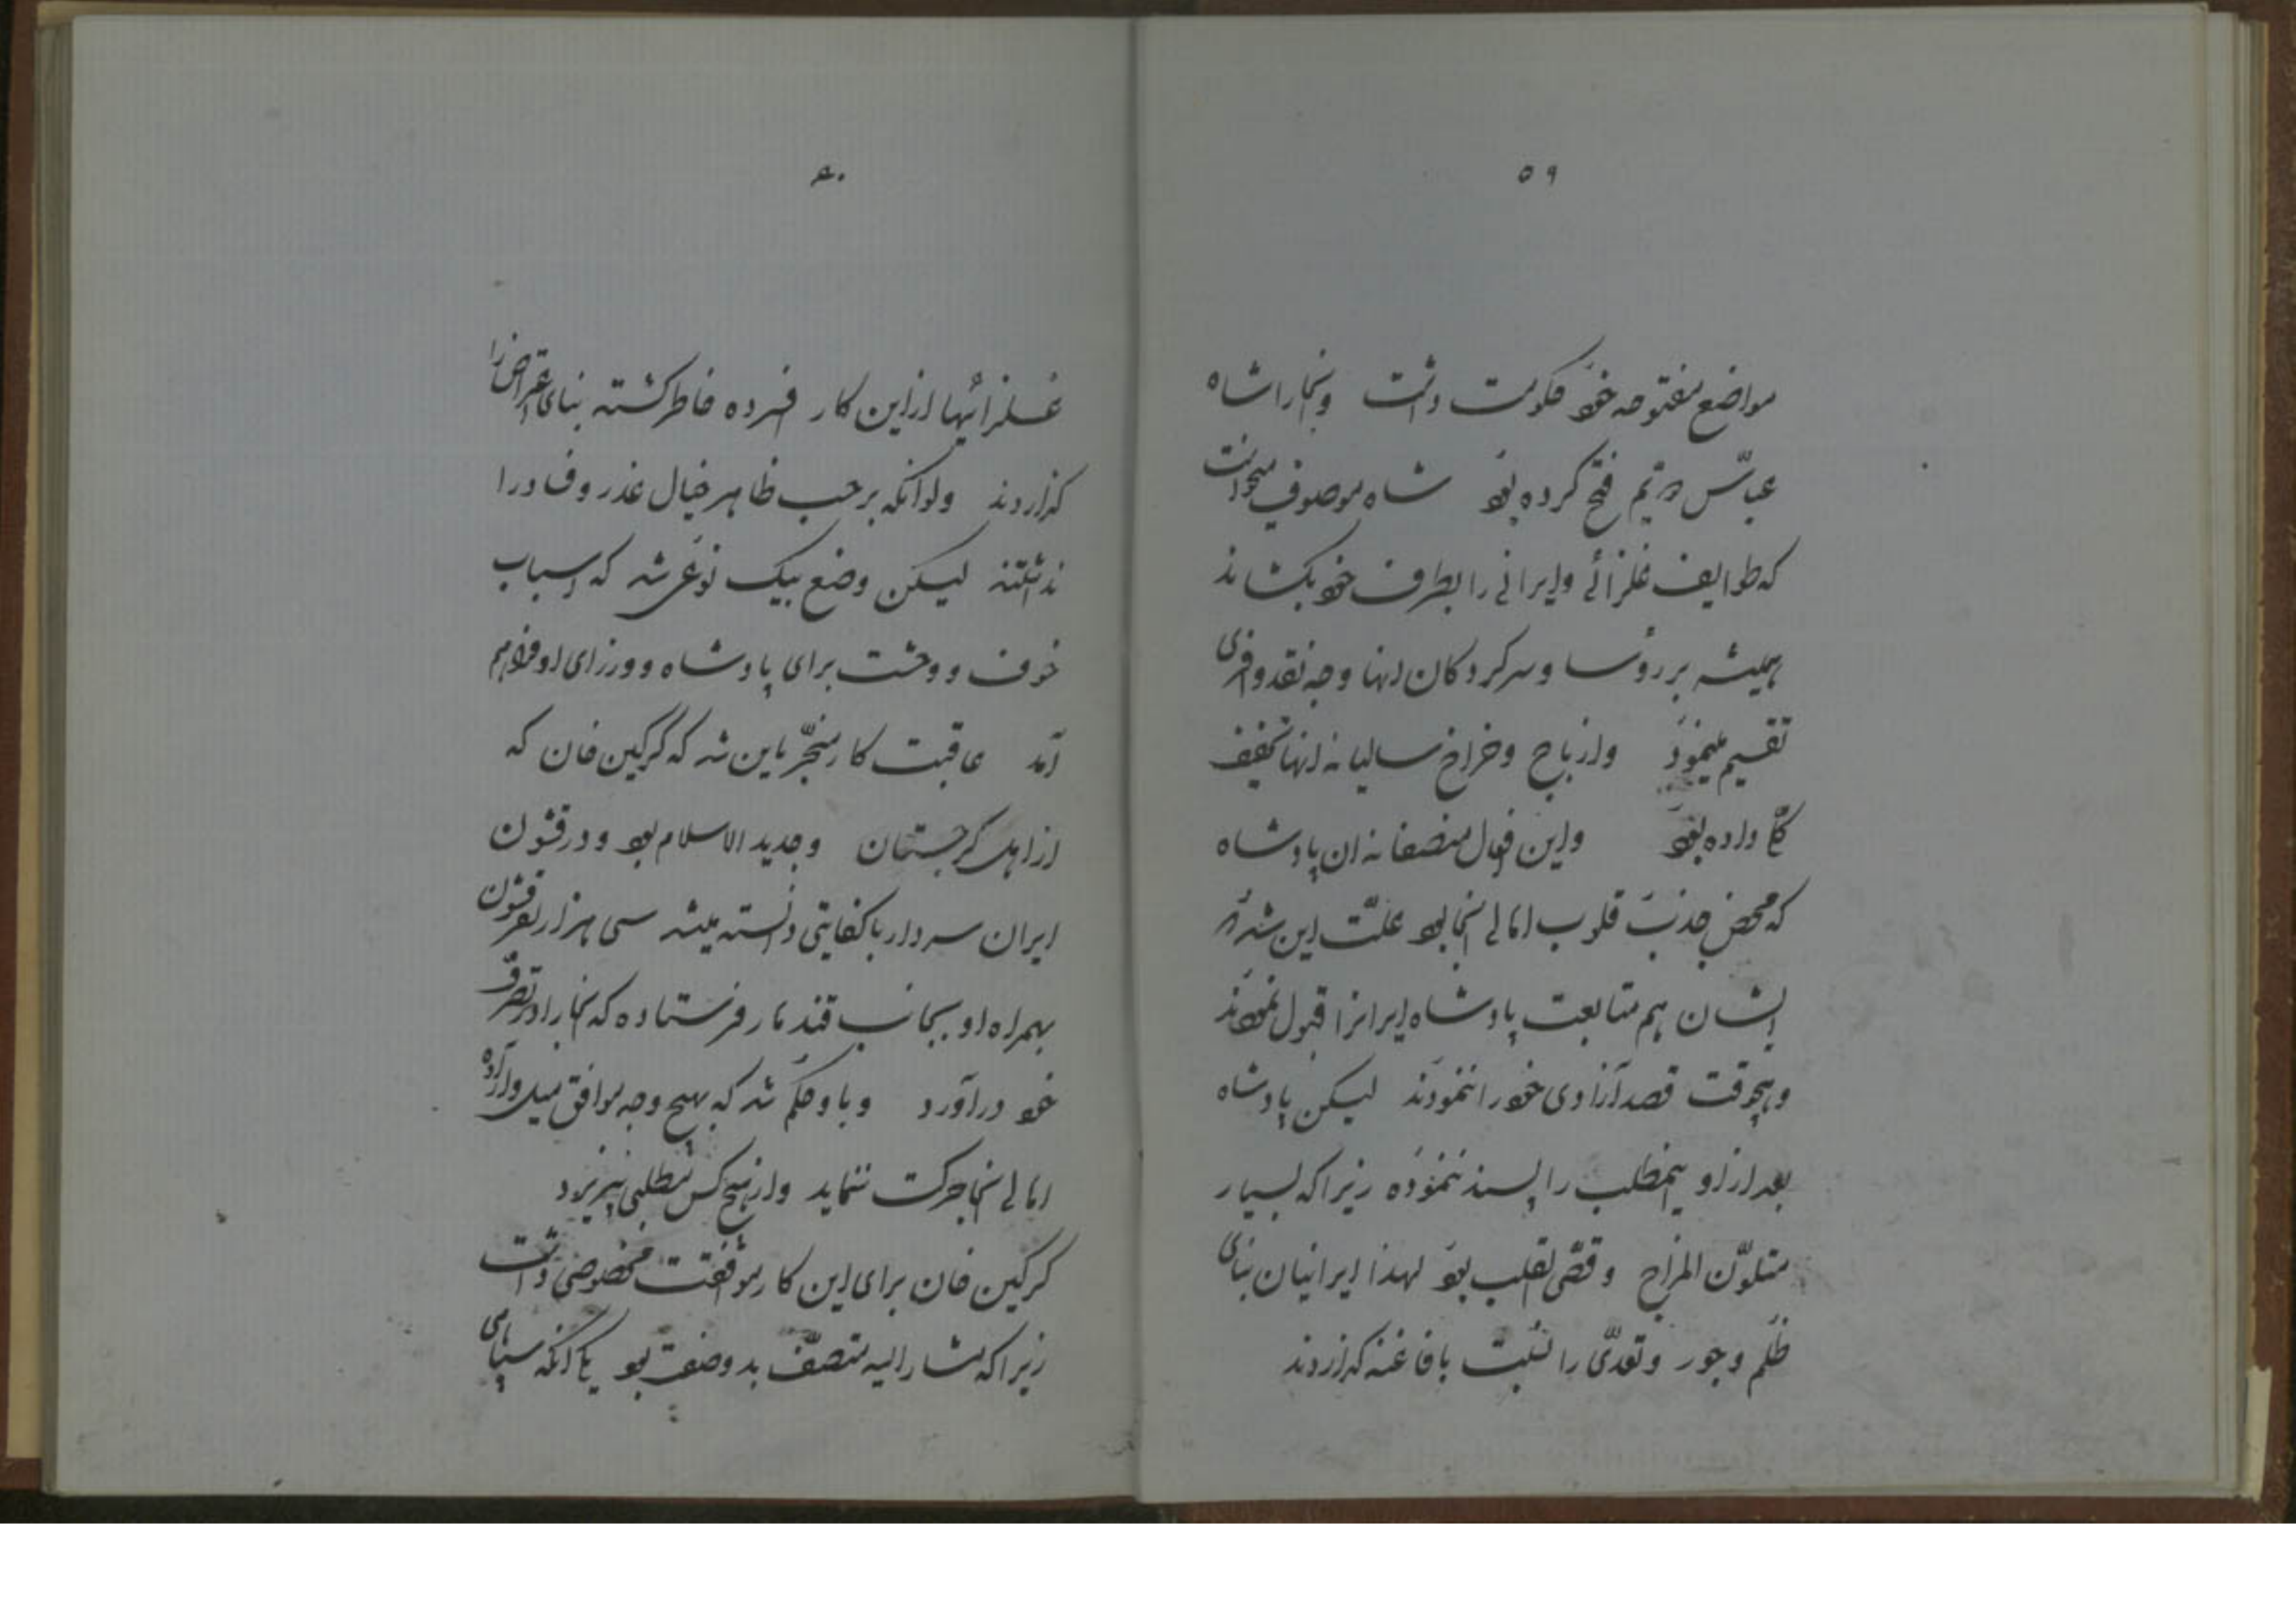 ۵۹
مواضع مفتوحه خود حکومت داشت وآنجا را شاه
عبّاس هم فتح کرده بود شاه موصوف میخواست
که طوایف غلزائی وایرانی را بطرف خود بکشاند
همیشه بر رؤسا وسرکردکان آنها وجه نقد وافری
تقسیم مینمود واز باج وخراج سالیانه آنها تخفیف
کلّی داده بود واین افعال منصفانه آن پادشاه
که محض جذب قلوب اهالی آنجا بود علّت این شد که
ایشان هم متابعت پادشاه ایرانرا قبول نمودند
وهیچوقت قصد آزادی خود را ننمودند لیکن پادشاه
بعد از او اینمطلب را پسند ننموده زیرا که بسیار
متلوّن المزاج وقصّی القلب بود لهذا ایرانیان بنای
ظلم وجور وتعدّی را نسبت بافاغنه کذاردند
۶۰
غلزائیها از این کار افسرده خاطر کشته بنای اعتراض را
کذاردند ولو آنکه برحسب ظاهر خیال غدر وفساد را
نداشتند لیکن وضع بیک نوعی شد که اسباب
خوف ووحشت برای پادشاه ووزرای او فراهم
آمد عاقبت کار منجّر باین شد که کرکین خان که
از اهل کرجستان وجدید الاسلام بود ودر قشون
ایران سردار باکفایتی دانسته میشد سی هزار نفر قشون
بهمراه او بجانب قندهار فرستاده که آنجا را در تصرّف
خود درآورد وباو حکم شد که بهیچ وجه موافق میل واراده
اهالی آنجا حرکت ننماید واز هیچ کس مطلبی نپذیرد
کرکین خان برای این کار موافقت مخصوصی داشت
زیرا که مشار الیه متصّف بدو صفت بود یکی آنکه سپاهی